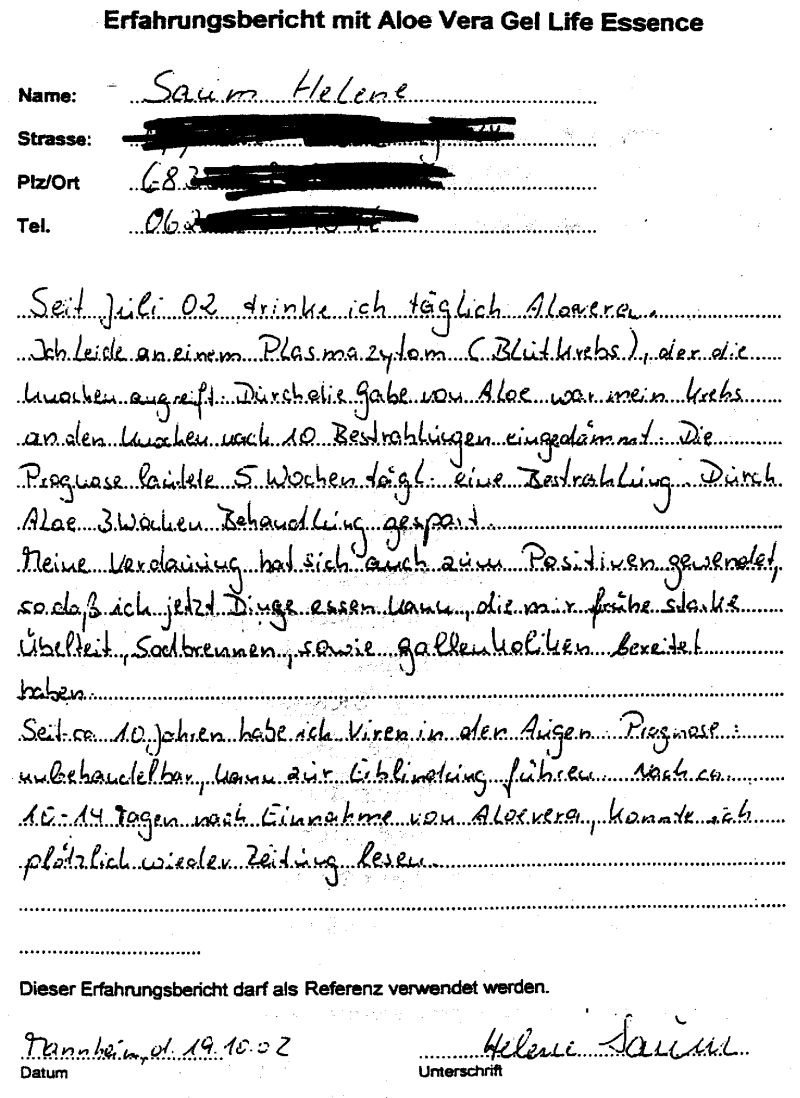 Erfahrungsbericht mit Aloe Vera Gel Life Essence
Name: Saum Helene
Strasse:
Plz/Ort 682
Tel. 062
Seit Juli 02 trinke ich täglich Aloevera.
Ich leide an einem Plasmazytom (Blutkrebs), der die
Knochen angreift. Durch die Gabe von Aloe war mein Krebs
an den Knochen nach 10 Bestrahlungen eingedämmt. Die
Prognose lautete 5 Wochen tägl. eine Bestrahlung. Durch
Aloe 3 Wochen Behandlung gespart.
Meine Verdauung hat sich auch zum Positiven gewendet,
so daß ich jetzt Dinge essen kann, die mir frühe starke
Übelkeit, Sodbrennen, sowie Gallenkoliken bereitet
haben.
Seit ca 10 Jahren habe ich Viren in den Augen Prognose:
unbehandelbar, kann zur Erblindung führen. Nach ca.
10-14 Tagen nach Einnahme von Aloevera, konnte ich
plötzlich wieder Zeitung lesen.
Dieser Erfahrungsbericht darf als Referenz verwendet werden.
Mannheim, d. 19.10.02 Helene Saum
Datum Unterschrift